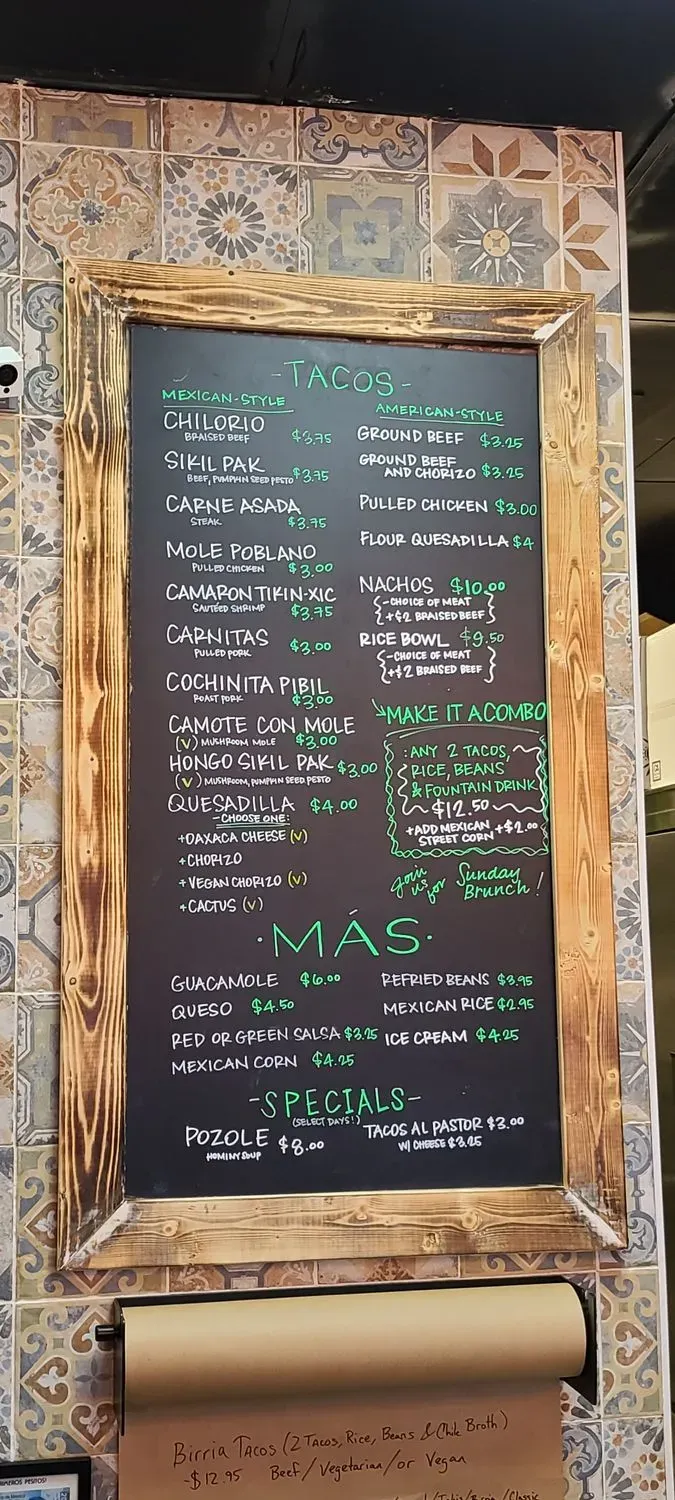 -TACOS-
MEXICAN-STYLE
CHILORIO
BRAISED BEEF $3.75
SIKIL PAK
BEEF, PUMPKIN SEED PESTO $3.75
CARNE ASADA
STEAK $3.75
MOLE POBLANO
PULLED CHICKEN $3.00
CAMARON TIKIN-XIC
SAUTÉED SHRIMP $3.75
CARNITAS
PULLED PORK $3.00
COCHINITA PIBIL
ROAST PORK $3.00
CAMOTE CON MOLE
(V) MUSHROOM MOLE $3.00
HONGO SIKIL PAK $3.00
(V) MUSHROOM, PUMPKIN SEED PESTO
QUESADILLA $4.00
-CHOOSE ONE:
+OAXACA CHEESE (V)
+CHORIZO
+VEGAN CHORIZO (V)
+CACTUS (V)
AMERICAN-STYLE
GROUND BEEF $3.25
GROUND BEEF
AND CHORIZO $3.25
PULLED CHICKEN $3.00
FLOUR QUESADILLA $4
NACHOS $10.00
-CHOICE OF MEAT
+$2 BRAISED BEEF
RICE BOWL $9.50
-CHOICE OF MEAT
+$2 BRAISED BEEF
MAKE IT A COMBO
:ANY 2 TACOS,
RICE, BEANS
& FOUNTAIN DRINK
$12.50
+ADD MEXICAN
STREET CORN +$2.00
Join us for Sunday Brunch!
·MÁS·
GUACAMOLE $6.00
QUESO $4.50
RED OR GREEN SALSA $3.25
MEXICAN CORN $4.25
REFRIED BEANS $3.95
MEXICAN RICE $2.95
ICE CREAM $4.25
-SPECIALS-
(SELECT DAYS!)
POZOLE $8.00
HOMINY SOUP
TACOS AL PASTOR $3.00
W/ CHEESE $3.25
Birria Tacos (2 Tacos, Rice, Beans & Chile Broth)
-$12.95 Beef/Vegetarian/or Vegan